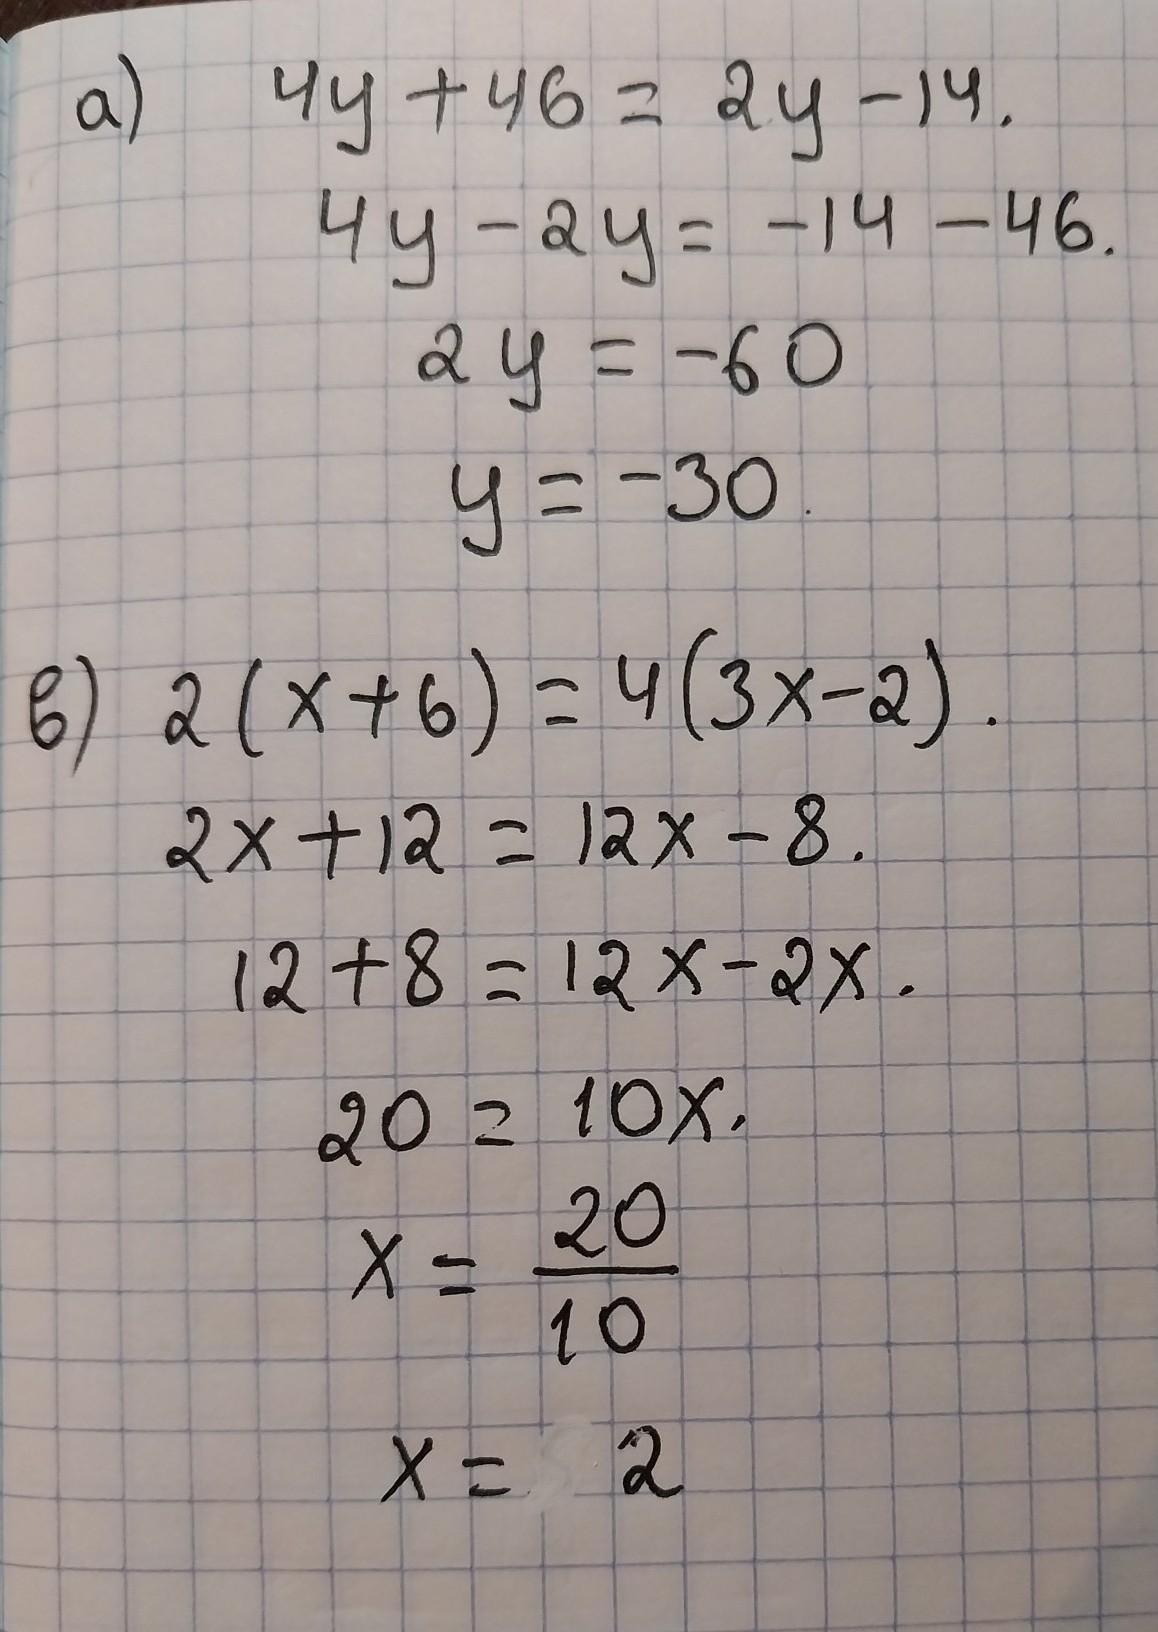 а) 4y + 46 = 2y - 14.
4y - 2y = -14 - 46.
2y = -60
y = -30.
в) 2(x+6) = 4(3x-2).
2x + 12 = 12x - 8.
12 + 8 = 12x - 2x.
20 = 10x.
x = 20/10
x = 2